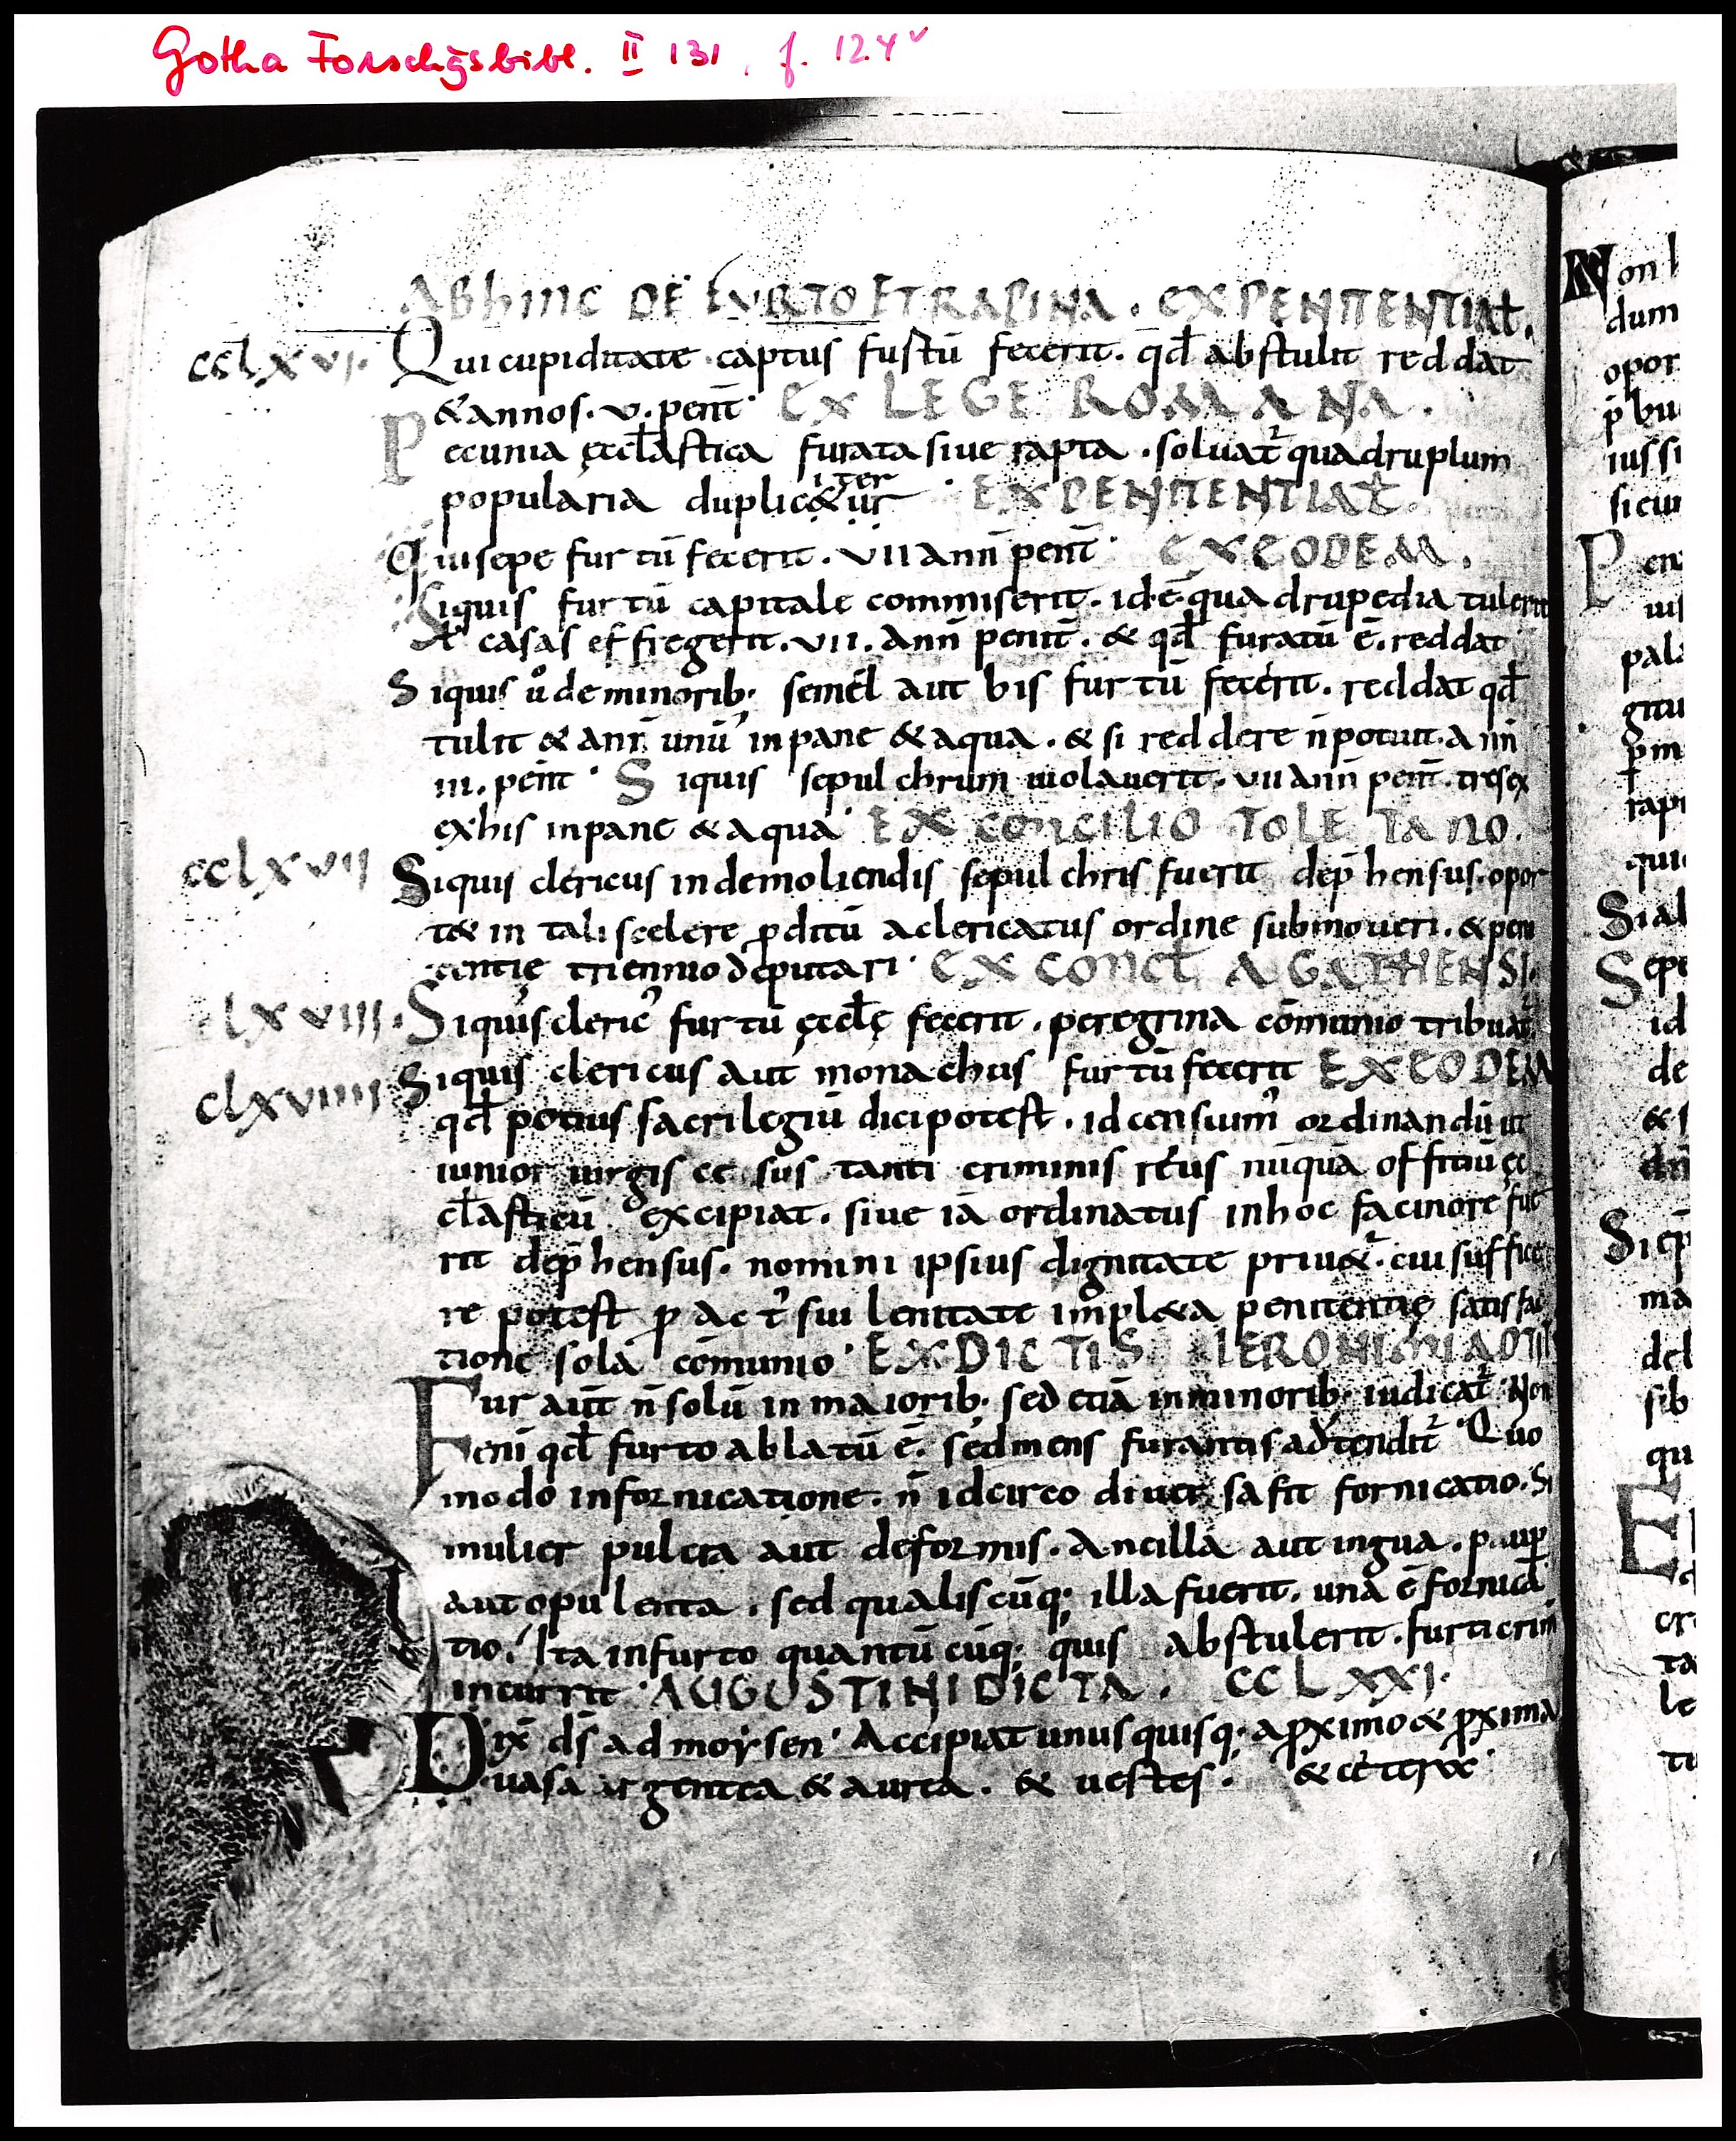 Gotha Forschgsbibl. II 131, f. 124v
ABhINC DE FVRTO ET RAPINA. EX PENITENTIAƚ.
ccLxvi. Qui cupiditate captus fustū fecerit. qd̄ abstulit reddat
& annos. v. penit̄. EX LEGE ROMANA.
Pecunia ęccƚastica furata siue rapta. soluat̄ quadruplum
popularia duplic&ur iter EX PENITENTIAƚ.
Qui sepe furtū fecerit. VII ann̄ penit̄. EX EODEM.
Siquis furtū capitale commiserit. id ē quadrupedia tulerit
casas effregerit. VII. ann̄ penit̄. & qd̄ furatū ē. reddat
Siquis ůo de minorib; semel aut bis furtū fecerit. reddat qd̄
tulit & ann̄ unū in pane & aqua. & si reddere n̄ potuit. ann̄
III. penit̄. Siquis sepulchrum uiolauerit. VII ann̄ penit̄. tres ex
ex his in pane & aqua. EX CONCILIO TOLETANO.
ccLxvii Siquis clericus in demoliendis sepulchris fuerit dep̄hensus. opor
t& in tali scelere ꝑditū a clericatus ordine submoueri. & peni
tentię triennio deputari. EX CONCƚ AGATHENSI.
Lxviii. Siquis cleric᾽ furtū ęccƚę fecerit. peregrina cōmunio tribuat̄
cLxviiii Siquis clericus aut monachus furtū fecerit EX EODEM
qd̄ potius sacrilegiū dici potest. id censuim᾽ ordinandū ut
iunior uirgis cęsus tanti criminis reus nūquā offitiū ęc
cƚasticū excipiat. siue iā ordinatus in hoc facinore fue
rit dep̄hensus. nomini ipsius dignitate priu&̄. cui suffice
re potest ꝑ act᾽ sui lenitate impl&a penitentię satisfac
tione sola cōmunio. EX DICTIS IERONIMI
Fur aut̄ n̄ solū in maiorib; sed etiā in minorib; iudicat̄. Non
eni qd̄ furto ablatū ē. sed mens furantis adtendit̄. Quo
modo in fornicatione. n̄ idcirco diuersa fit fornicatio. Si
mulier pulcra aut deformis. Ancilla aut ingua. paup̄
aut opulenta. sed qualiscūq; illa fuerit. una ē fornica
tio. Ita in furto quantūcūq; quis abstulerit. furti crim̄
incurrit. AUGUSTINI DICTA. CCLXXI.
Dix̄ ds̄ ad moysen. Accipiat unusquisq; a ꝓximo & ꝓxima
uasa argentea & aurea. & uestes. & cetera